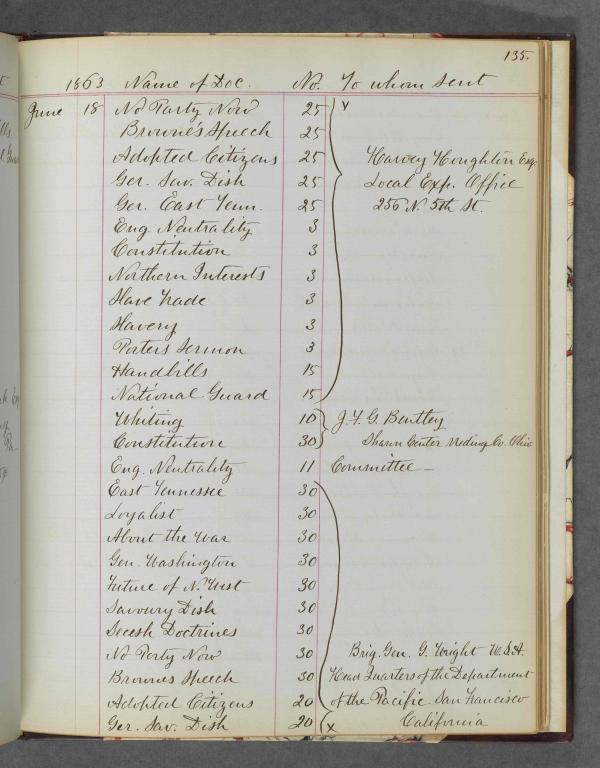 135.
1863 Name of Doc. No. To whom sent
June 18 No Party Now 25
Browne's Speech 25
Adopted Citizens 25 Harvey Houghton Esq.
Ger. Sav. Dish 25 Local Exp. Office
Ger. East Tenn. 25 256 N. 5th St.
Eng. Neutrality 3
Constitution 3
Northern Interests 3
Slave Trade 3
Slavery 3
Porters Sermon 3
Handbills 15
National Guard 15
Whiting 10 J. F. G. Bentley
Constitution 30 Sharon Center Medina Co. Ohio
Eng. Neutrality 11 Committee
East Tennessee 30
Loyalist 30
About the War 30
Gen. Washington 30
Future of N. West 30
Savoury Dish 30
Secesh Doctrines 30
No Party Now 30 Brig. Gen. G. Wright U.S.A.
Browne's Speech 30 Head Quarters of the Department
Adopted Citizens 20 of the Pacific San Francisco
Ger. Sav. Dish 20 x California